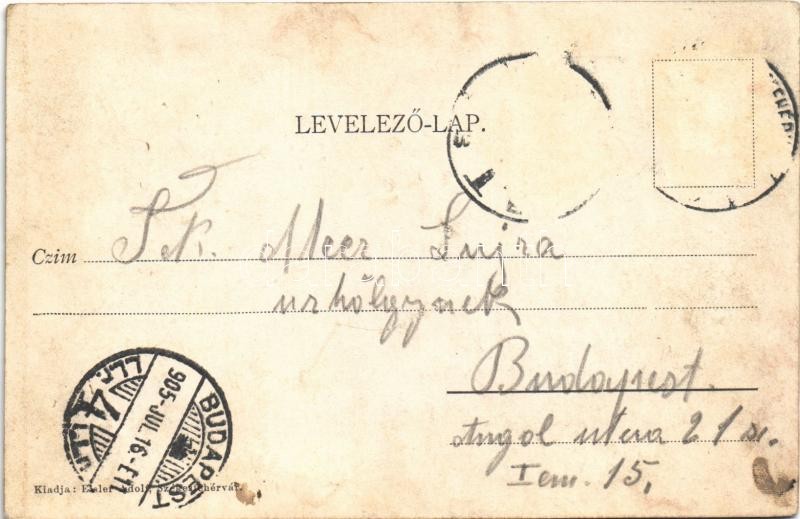 LEVELEZŐ-LAP.
Czim Tek. Meer Lujza
urhölgynek
Budapest.
Angol utca 21 sz.
I em. 15.
BUDAPEST
905 JUL. 16. E
Kiadja: Eisler Adolf, Székesfehérvár.